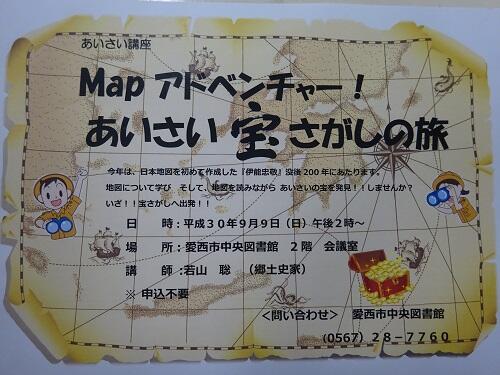 あいさい講座
Map アドベンチャー！
あいさい 宝 さがしの旅
今年は、日本地図を初めて作成した『伊能忠敬』没後200年にあたります。
地図について学び そして、地図を読みながら あいさいの宝を発見！！しませんか？
いざ！！宝さがしへ出発！！
日 時：平成３０年９月９日（日）午後２時～
場 所：愛西市中央図書館 ２階 会議室
講 師：若山 聡 （郷土史家）
※ 申込不要
＜問い合わせ＞ 愛西市中央図書館
（0567）２８－７７６０